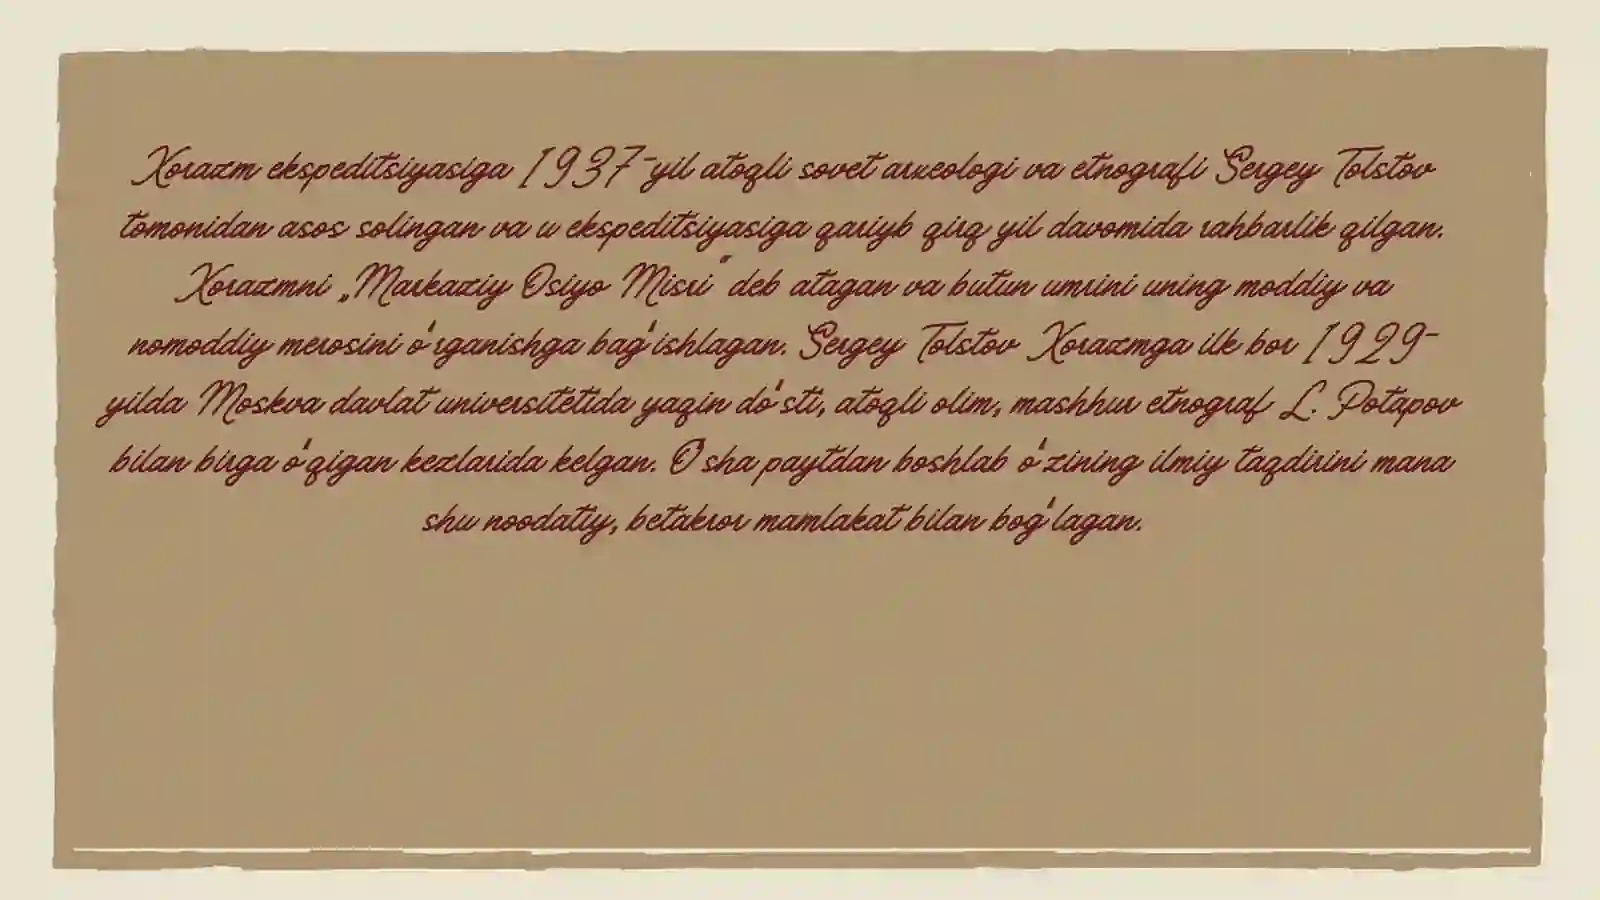 Xorazm ekspeditsiyasiga 1937-yil atoqli sovet arxeologi va etnografi Sergey Tolstov
tomonidan asos solingan va u ekspeditsiyasiga qariyb qirq yil davomida rahbarlik qilgan.
Xorazmni „Markaziy Osiyo Misri“ deb atagan va butun umrini uning moddiy va
nomoddiy merosini oʻrganishga bagʻishlagan. Sergey Tolstov Xorazmga ilk bor 1929-
yilda Moskva davlat universitetida yaqin doʻsti, atoqli olim, mashhur etnograf L. Potapov
bilan birga oʻqigan kezlarida kelgan. Oʻsha paytdan boshlab oʻzining ilmiy taqdirini mana
shu noodatiy, betakror mamlakat bilan bogʻlagan.